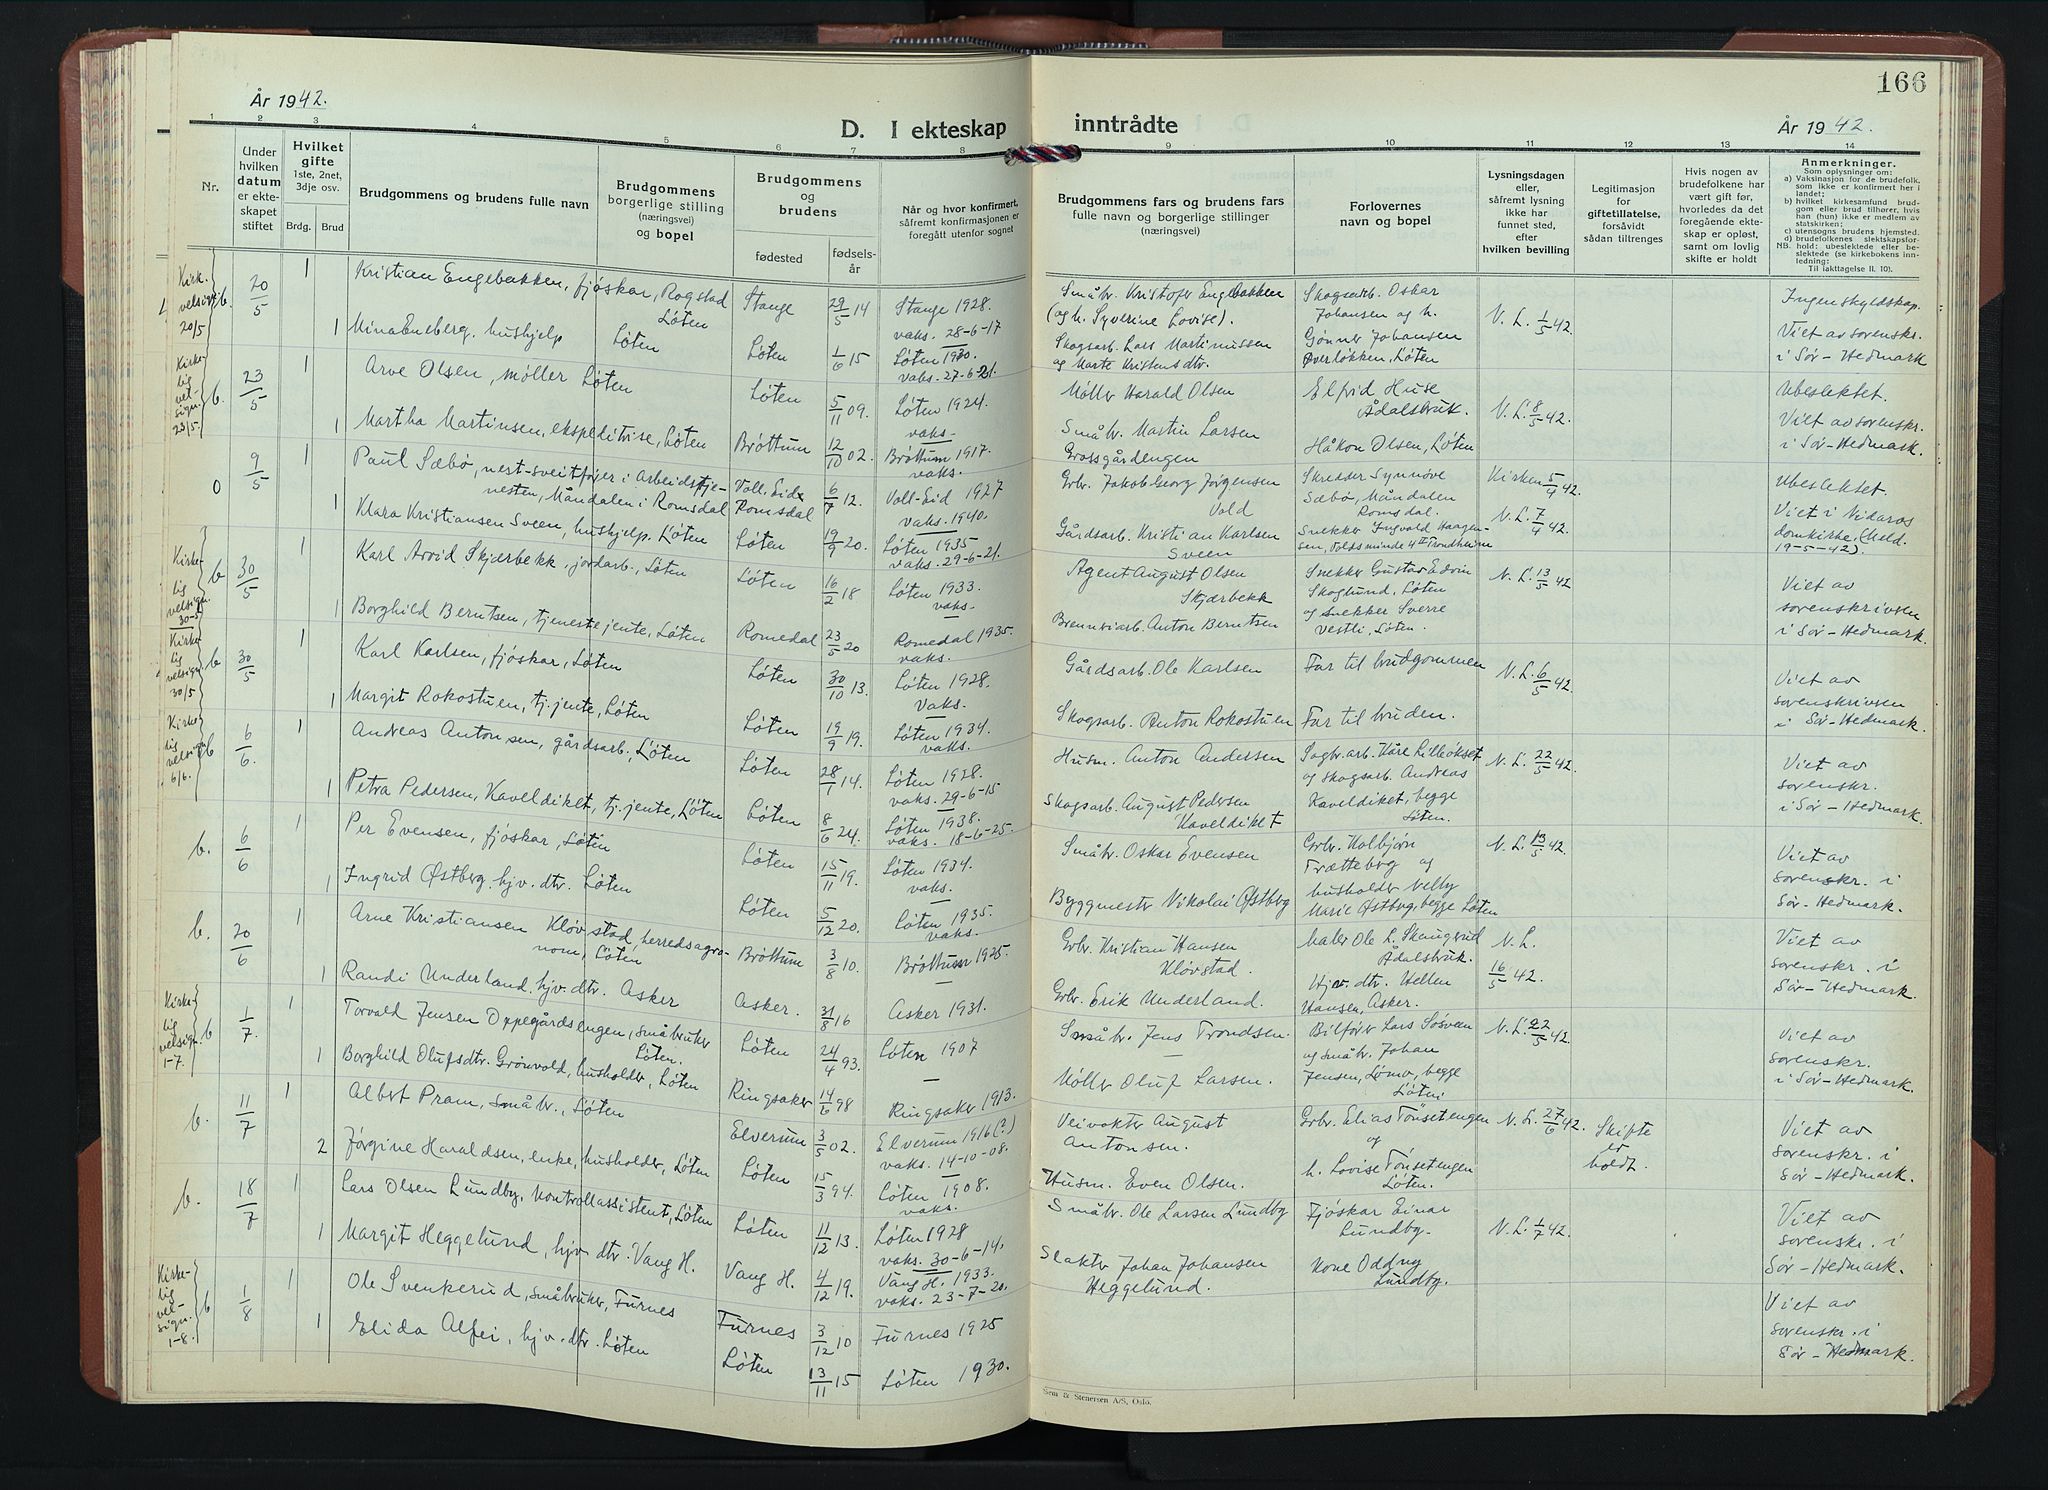 166
År 1942.
D. I ekteskap inntrådte
År 1942.
1 2 3 4 5 6 7 8 9 10 11 12 13 14
Nr.
Under hvilken datum er ekteskapet stiftet
Hvilket gifte 1ste, 2net, 3dje osv.
Brdg. Brud
Brudgommens og brudens fulle navn
Brudgommens borgerlige stilling (næringsvei) og bopel
Brudgommens og brudens
fødested
fødselsår
Når og hvor konfirmert, såfremt konfirmasjonen er foregått utenfor sognet
Brudgommens fars og brudens fars fulle navn og borgerlige stillinger (næringsvei)
Forlovernes navn og bopel
Lysningsdagen eller, såfremt lysning ikke har funnet sted, efter hvilken bevilling
Legitimasjon for giftetillatelse, forsåvidt sådan tiltrenges
Hvis nogen av brudefolkene har vært gift før, hvorledes da det foregående ekteskap er opløst, samt om lovlig skifte er holdt
Anmerkninger.
Som oplysninger om:
a) Vaksinasjon for de brudefolk, som ikke er konfirmert her i landet;
b) hvilket kirkesamfund brudgom eller brud tilhører, hvis han (hun) ikke er medlem av statskirken;
c) utensogns brudens hjemsted.
d) brudefolkenes slektskapsforhold: ubeslektede eller beslektede (se kirkebokens innledning:
NB.
Til iakttagelse II. 10).
Kirk. velsign. 20/5 b. 20/5 1 Kristian Engebakken, fjøskar, Rogstad Løten Stange 29/5 14 Stange 1928. vaks. 28-6-17 Småbr. Kristofer Engebakken (og h. Syverine Lovise). Skogsarb. Oskar Johansen og h. Gønner Johansen Øverløkken, Løten N. L. 1/5 42. Ingen skyldskap. Viet av sorenskr. i Sør-Hedmark
1 Mina Eneberg, hushjelp Løten Løten 1/6 15 Løten 1930. vaks. 27-6-21. Skogsarb. Lars Martinussen og Marte Kristensdtr.
Kirkelig velsign. 23/5 b. 23/5 1 Arve Olsen, møller Løten Løten 5/11 09. Løten 1924. vaks. Møller Harald Olsen Elfrid Huse Ådalsbruk. N. L. 8/5 42. Ubeslektet. Viet av sorenskr. i Sør-Hedmark.
1 Martha Martinsen, ekspeditrise, Løten Brøttum 12/10 02. Brøttum 1917. vaks. Småbr. Martin Larsen Grossgårdengen Håkon Olsen, Løten
0 9/5 1 Paul Sæbø, nest-sveitfører i Arbeidstjenesten, Måndalen i Romsdal Voll. Eid Romsdal 6/7 12. Voll-Eid 1927 vaks. 1940. Grbr. Jakob Georg Jørgensen Vold Skredder Synnøve Sæbø, Måndalen Romsdal. Kirken 5/4 42. Ubeslektet. Viet i Nidaros domkirke, (Meld. 19-5-42).
1 Klara Kristiansen Sveen, hushjelp. Løten Løten 19/9 20. Løten 1935 vaks. 29-6-21. Gårdsarb. Kristian Karlsen Sveen Snekker Ingvald Haagensen, Toldsminde 4 II Trondheim N. L. 7/4 42.
Kirkelig velsign. 30-5 b 30/5 1 Karl Arvid Skjærbekk, jordarb., Løten Løten 16/2 18 Løten 1933. vaks. Agent August Olsen Skjærbekk Snekker Gustav Edvin Skoglund, Løten og snekker Sverre Vestli, Løten. N. L. 13/5 42 Viet av sorenskriveren i Sør-Hedmark.
1 Borghild Berntsen, tjenestejente, Løten Romedal 23/5 20 Romedal 1935. vaks. Brenneriarb. Anton Berntsen
Kirkelig velsign. 30/5 b 30/5 1 Karl Karlsen, fjøskar, Løten Løten 30/10 13. Løten 1928. Vaks. Gårdsarb. Ole Karlsen Far til brudgommen N. L. 6/5 42. Viet av sorenskriveren i Sør-Hedmark.
1 Margit Rokostuen, tj.jente, Løten Løten 19/9 19. Løten 1934. vaks. Skogsarb. Anton Rokostuen Far til bruden.
Kirkelig velsign. 6/6. b 6/6. 1 Andreas Antonsen, gårdsarb., Løten Løten 28/1 14. Løten 1928. vaks. 29-6-15 Husm. Anton Andersen Sagbr.arb. Kåre Lilleøkset og skogsarb. Andreas Kaveldiket, begge Løten. N. L. 22/5 42. Viet av sorenskr. i Sør-Hedmark.
1 Petra Pedersen, Kaveldiket, tj.jente, Løten Løten 8/6 24. Løten 1938. vaks. 18-6-25. Skogsarb. August Pedersen Kaveldiket
b. 6/6 1 Per Evensen, fjøskar, Løten Løten 15/11 19. Løten 1934. vaks. Småbr. Oskar Evensen Grbr. Kolbjørn Trætteberg og husholder Velby Marie Østberg, begge Løten N. L. 13/5 42. Viet av sorenskr. i Sør-Hedmark.
1 Ingrid Østberg. hjv. dtr. Løten Løten 5/12 20. Løten 1935. vaks. Byggmester Nikolai Østberg
b. 20/6 1 Arne Kristiansen Kløvstad, herredsagronom, Løten Brøttum 3/8 10. Brøttum 1925. Grbr. Kristian Hansen Kløvstad. Maler Ole L. Skaugerud Ådalsbruk. N. L. 16/5 42. Viet av sorenskr. i Sør-Hedmark.
1 Randi Underland. hjv. dtr. Asker Asker. 31/8 16 Asker 1931. Grbr. Erik Underland. Hjv. dtr. Hellen Hansen, Asker.
Kirkelig velsign. 1-7. b 1/7. 1 Torvald Jensen Oppegårdsengen, småbruker Løten. Løten 24/4 93. Løten 1907 Småbr. Jens Trondsen. Bilfører Lars Søsveen og småbr. Johan Jensen, Lømo, begge Løten. N. L. 22/5 42. Viet av sorenskr. i Sør-Hedmark.
1 Borghild Olufsdtr. Grønvold, husholder, Løten Ringsaker 14/6 98 Ringsaker 1913. Møller Oluf Larsen.
b. 11/7 1 Albert Pram, småbr., Løten Elverum 3/5 02. Elverum 1916(?) vaks. 14-10-08. Veivokter August Antonsen. Grbr. Elias Tønsetengen og h. Lovise Tønsetengen Løten. N. L. 27/6 42. Skifte er holdt. Viet av sorenskr. i Sør-Hedmark.
2 Jørgine Haraldsen, enke, husholder, Løten Løten 15/3 94. Løten 1908. vaks. Husm. Even Olsen.
b. 18/7 1 Lars Olsen Lundby, kontrollassistent, Løten Løten 11/12 13. Løten 1928 vaks. 30-6-14. Småbr. Ole Larsen Lundby Fjøskar Einar Lundby. N. L. 1/7 42. Viet av sorenskr. i Sør-Hedmark.
1 Margit Heggelund, hjv. dtr. Vang H. Vang H. 4/12 19. Vang H. 1933. vaks. 23-7-20. Slakter Johan Johansen Heggelund. Kone Oddny Lundby.
Kirkelig velsign. 1-8. b 1/8 1 Ole Svenkerud, småbruker, Furnes Furnes 3/12 10 Furnes 1925 Viet av sorenskr. i Sør-Hedmark.
1 Elida Alfei, hjv. dtr. Løten Løten 13/11 15 Løten 1930.
Sem & Stenersen A/S, Oslo.